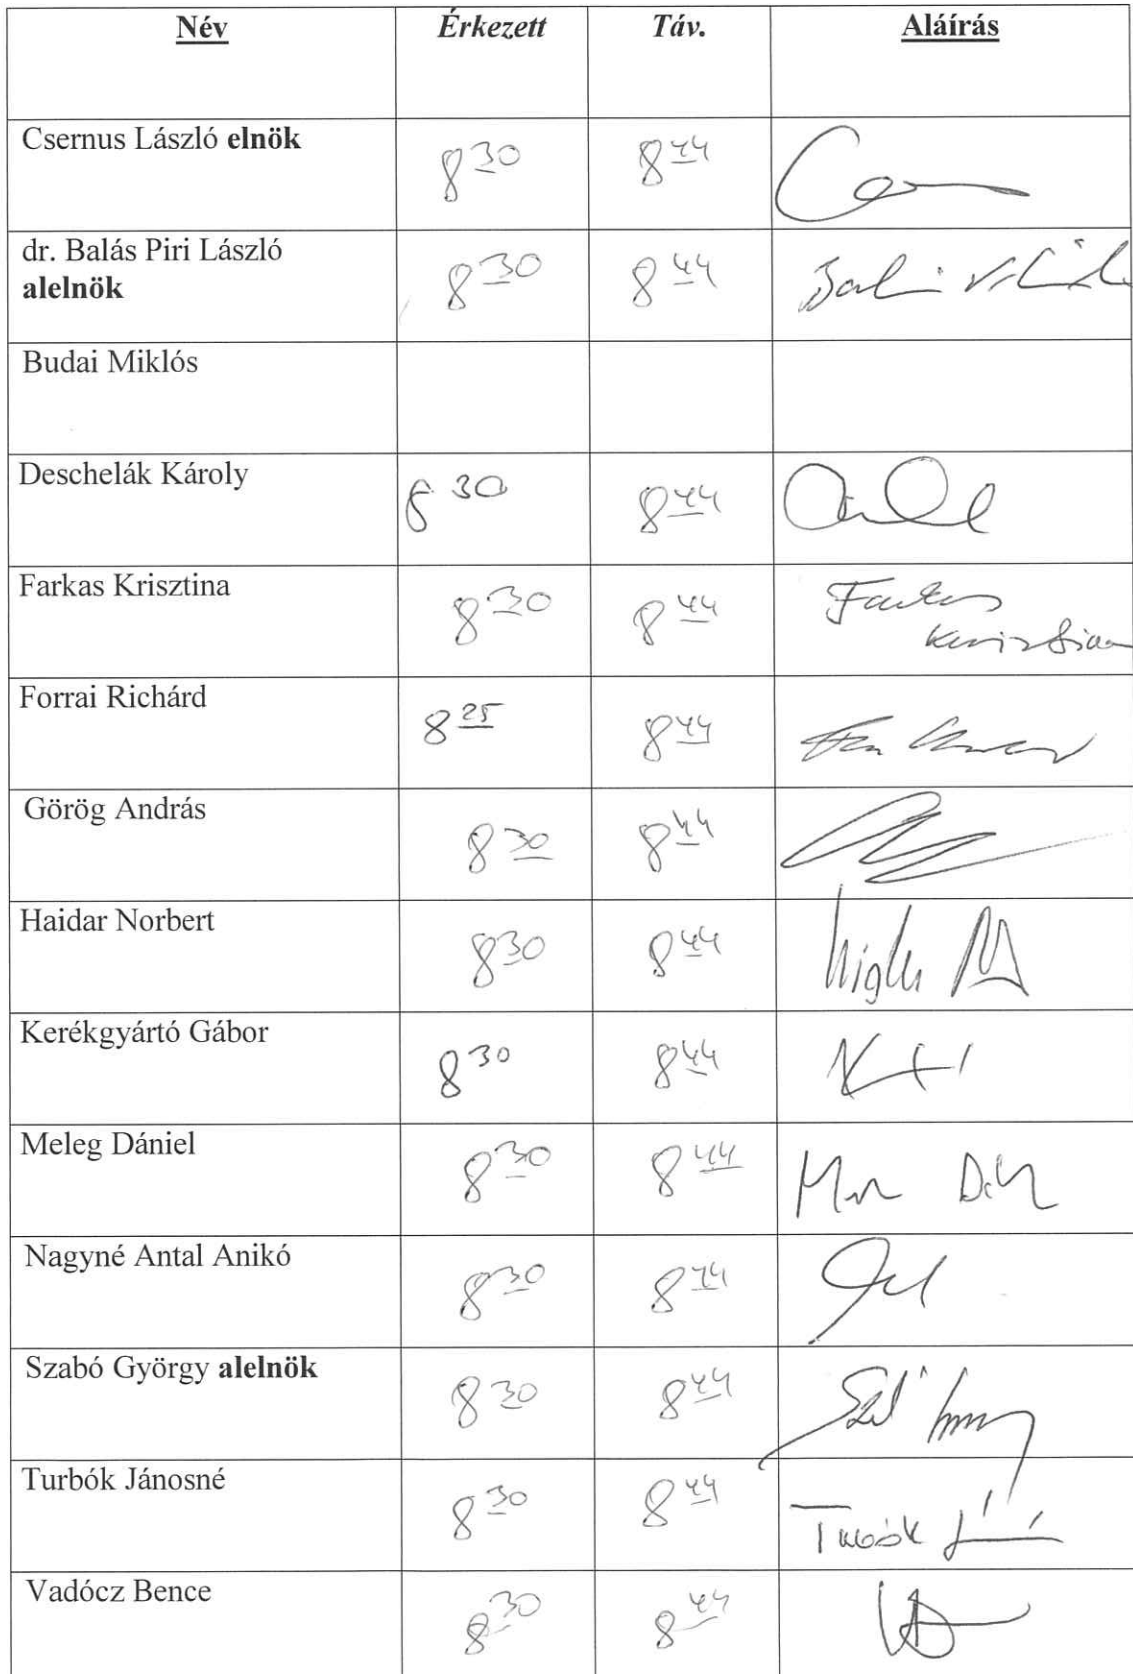 Név Érkezett Táv. Aláírás
Csernus László elnök 8 30 8 44
dr. Balás Piri László
alelnök 8 30 8 44
Budai Miklós
Deschelák Károly 8 30 8 44
Farkas Krisztina 8 30 8 44 Farkas
Krisztina
Forrai Richárd 8 25 8 44
Görög András 8 30 8 44
Haidar Norbert 8 30 8 44
Kerékgyártó Gábor 8 30 8 44
Meleg Dániel 8 30 8 44
Nagyné Antal Anikó 8 30 8 44
Szabó György alelnök 8 30 8 44
Turbók Jánosné 8 30 8 44 Turbók
Vadócz Bence 8 30 8 44